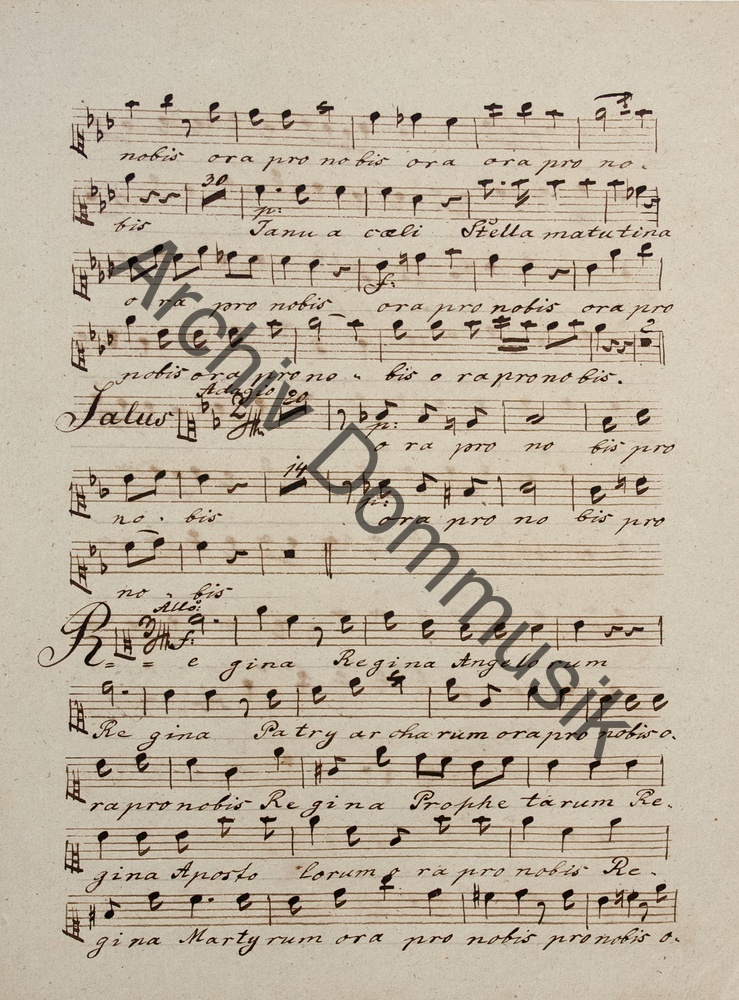 nobis ora pro nobis ora ora pro no-
30
bis p: Janua cæli Stella matutina
o ra pro nobis f: ora pro nobis ora pro
2
nobis ora pro no - bis o ra pro nobis.
Adagio 20
Salus 2/4 p: o ra pro no bis pro
14
no - bis p: ora pro no bis pro
no - bis
Allo:
R 3/4 f:
= = e gina Regina Angelo rum
Re gina Patry ar charum ora pro nobis o-
ra pro nobis Re gina Prophe tarum Re-
gina Aposto lorum o ra pro nobis Re-
gina Martyrum ora pro nobis pro nobis o-
Archiv Dommusik